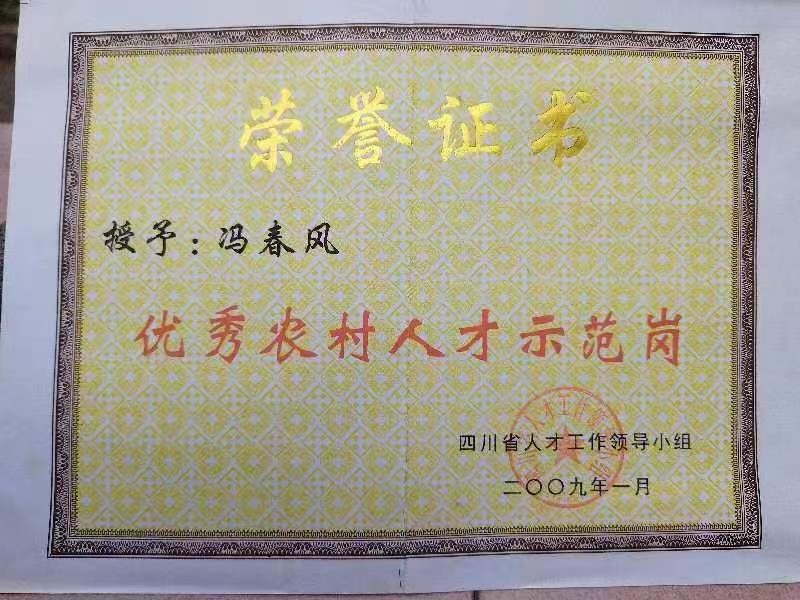 荣誉证书
授予：冯春风
优秀农村人才示范岗
四川省人才工作领导小组
二〇〇九年一月